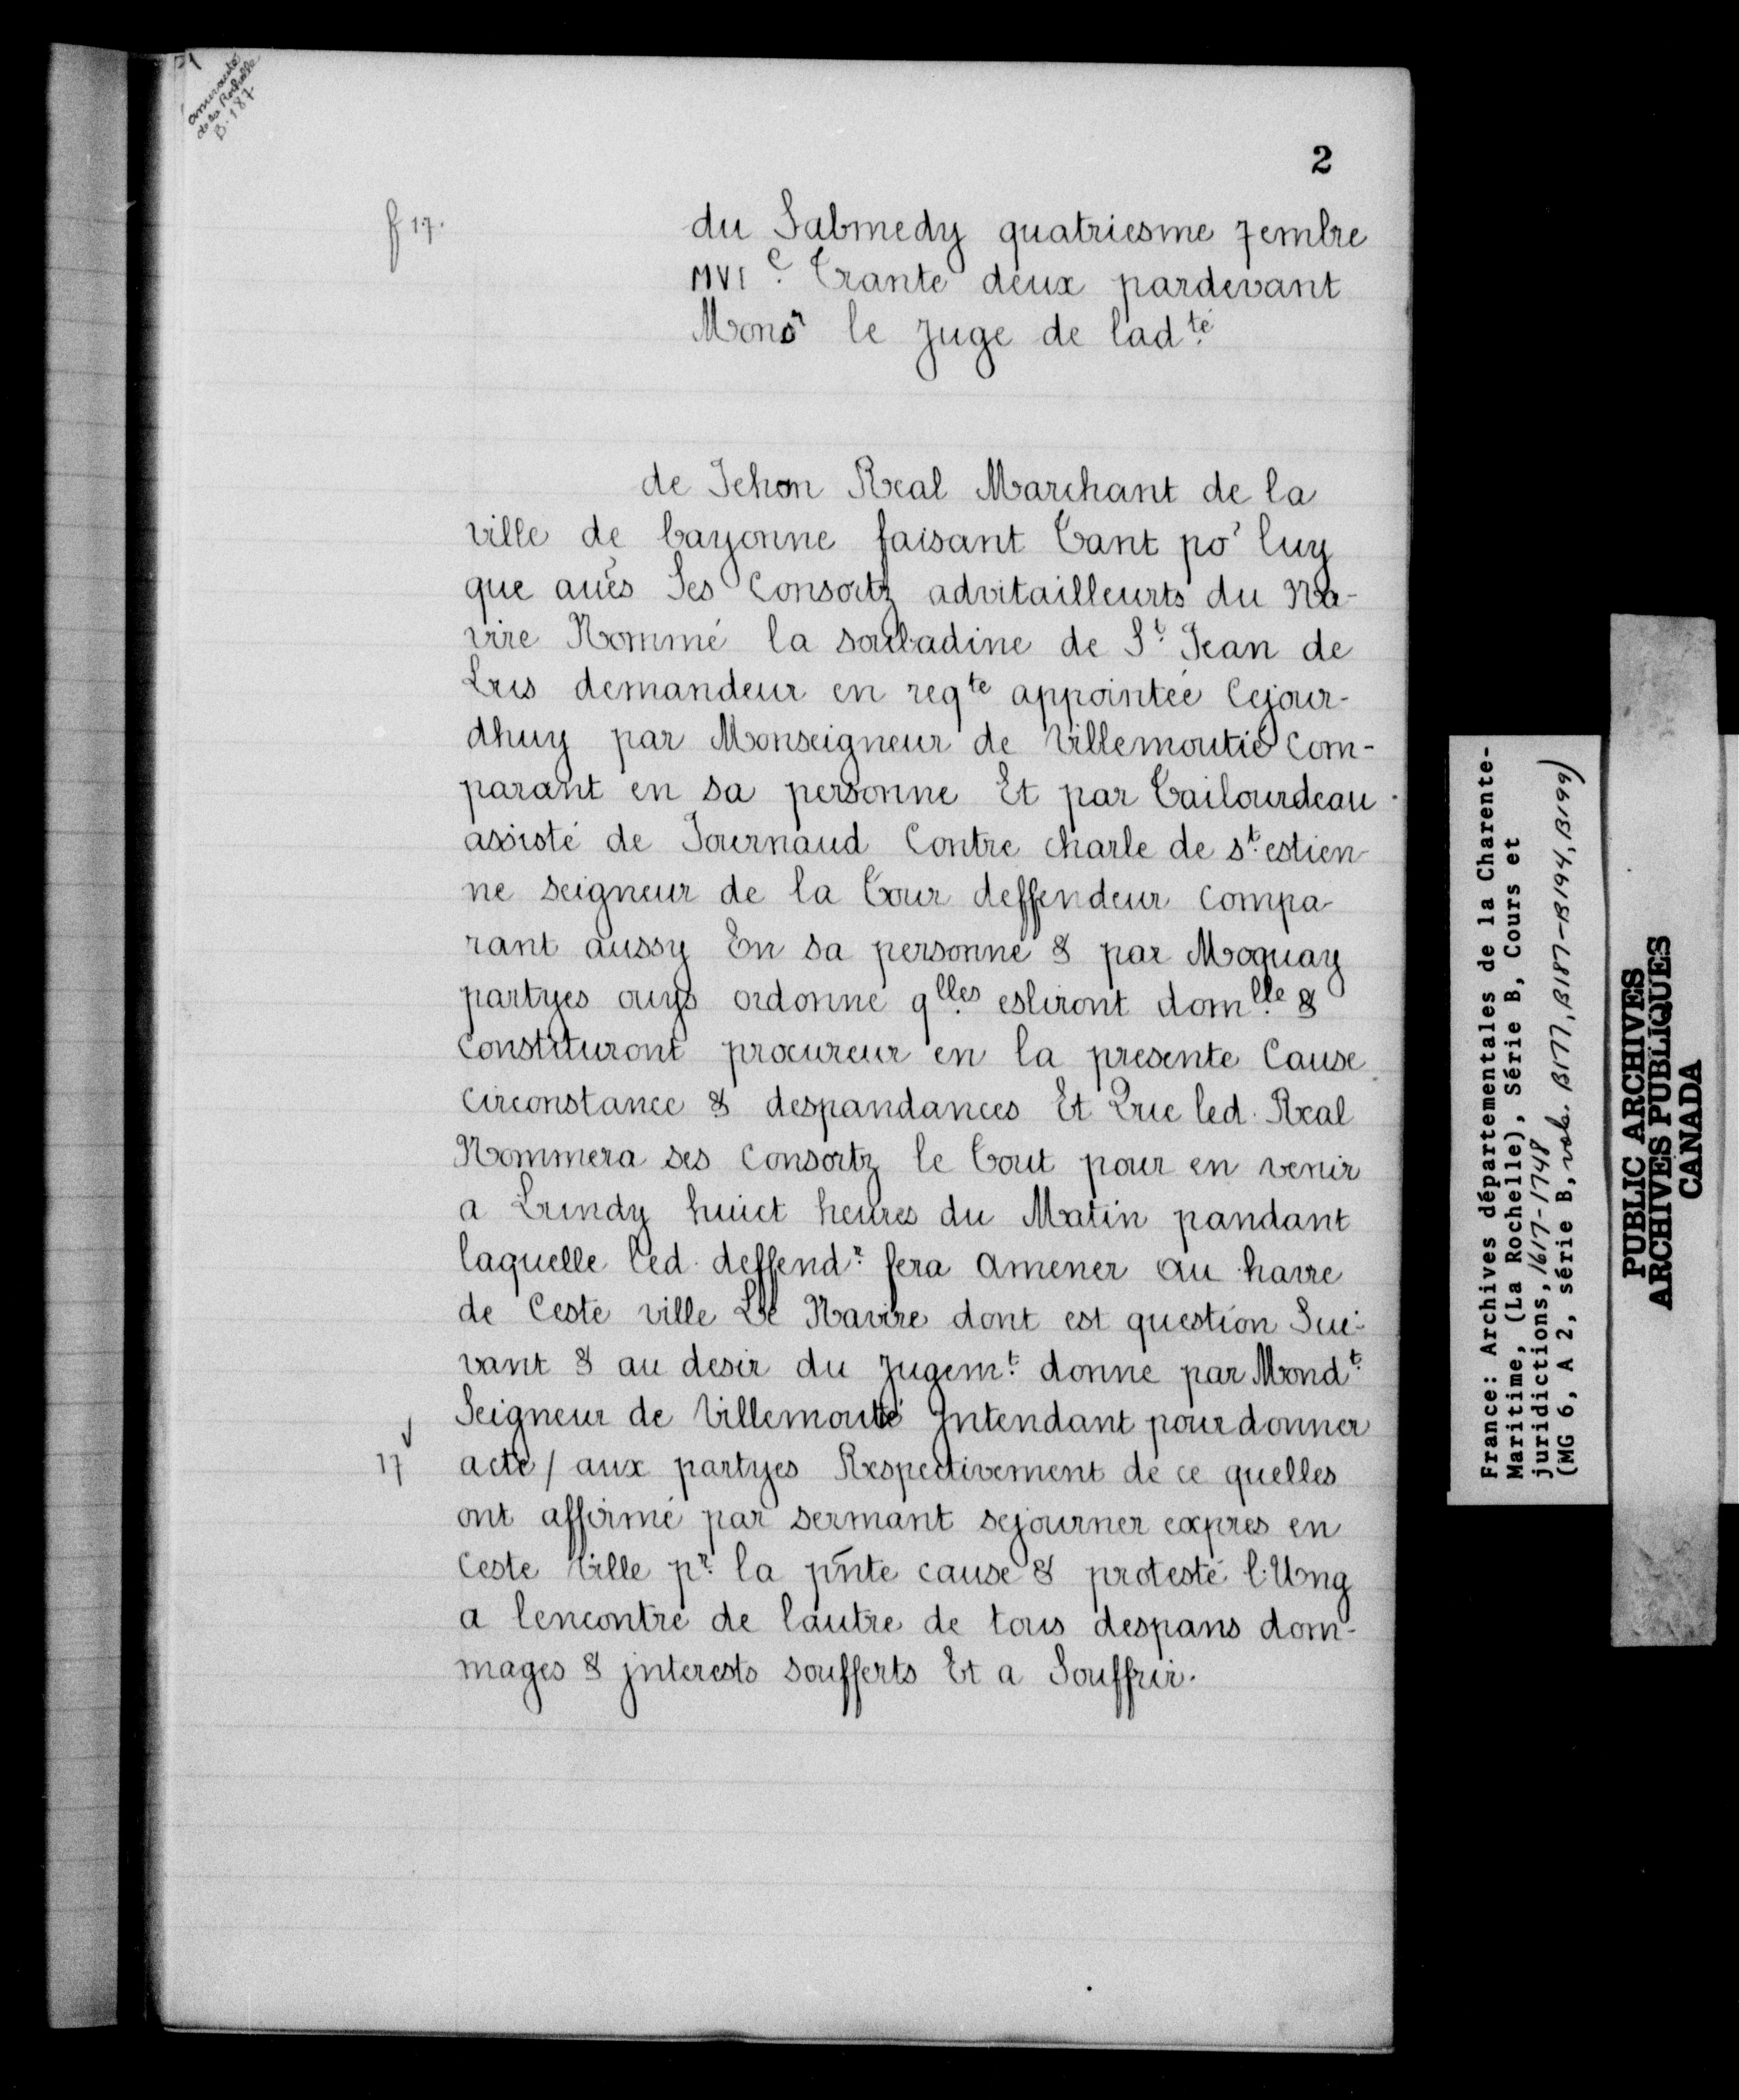 amirauté
de la Rochelle
B-187
2
f 17.
du Sabmedy quatriesme 7embre
MVIc. Trante deux pardevant
Monsr le Juge de ladté
de Jehon Real Marchant de la
ville de bayonne faisant Tant po' luy
que aues Ses Consortz advitailleurts du Na-
vire Nommé la soubadine de St. Jean de
Lus demandeur en reqte appointée Cejour-
dhuy par Monseigneur de Villemoutié Com-
parant en sa personne Et par Tailourdeau
assisté de Journaud Contre charle de st. estien-
ne seigneur de la Tour deffendeur Compa-
rant aussy En sa personne & par Moquay
partyes ouys ordonne qlles. esliront domlle. &
Constituront procureur en la presente Cause
Circonstance & despandances Et Que led. Real
Nommera ses Consortz le Tout pour en venir
a Lundy huict heures du Matin pandant
laquelle led. deffendr. fera Amener au havre
de Ceste ville Le Navire dont est question Sui-
vant & au desir du Jugemt. donne par Mondt.
Seigneur de Villemouté Intendant pour donner
17 acte / aux partyes Respectivement de ce quelles
ont affirmé par sermant sejourner expres en
Ceste Ville pr. la pñte cause & protesté l'Ung
a lencontre de lautre de tous despans dom-
mages & jnterests soufferts Et a Souffrir.
France: Archives départementales de la Charente-
Maritime, (La Rochelle), Série B, Cours et
juridictions, 1617-1748
(MG 6, A 2, série B, vols. B177, B187-B194, B199)
PUBLIC ARCHIVES
ARCHIVES PUBLIQUES
CANADA